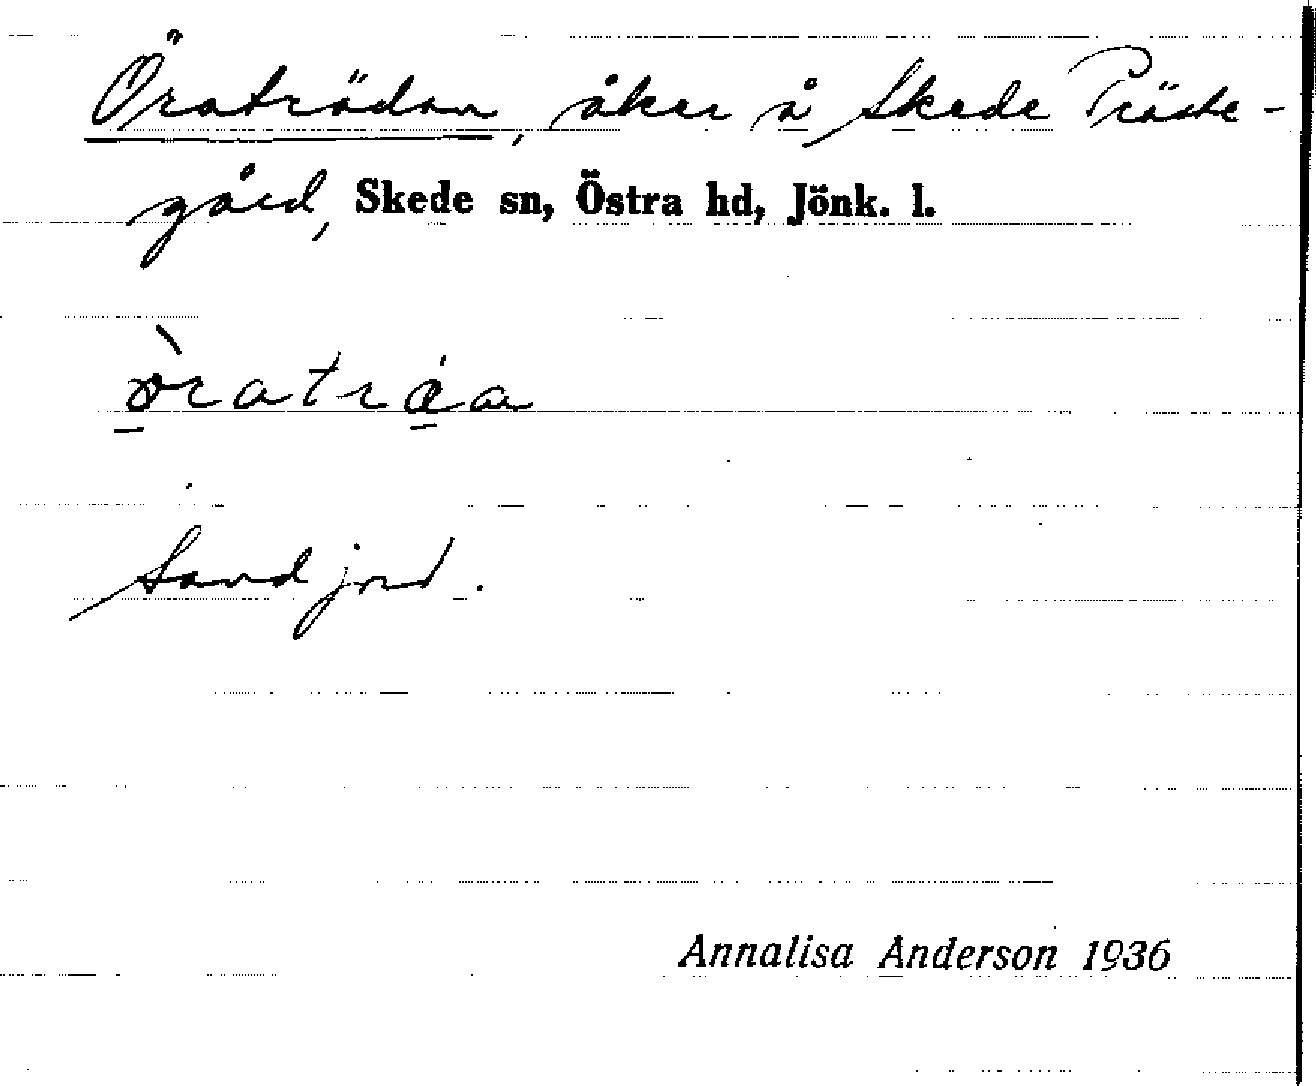 Öraträdan, åker å Skede Präste-
gård, Skede sn, Östra hd, Jönk. l.
Sandjord.
Annalisa Anderson 1936